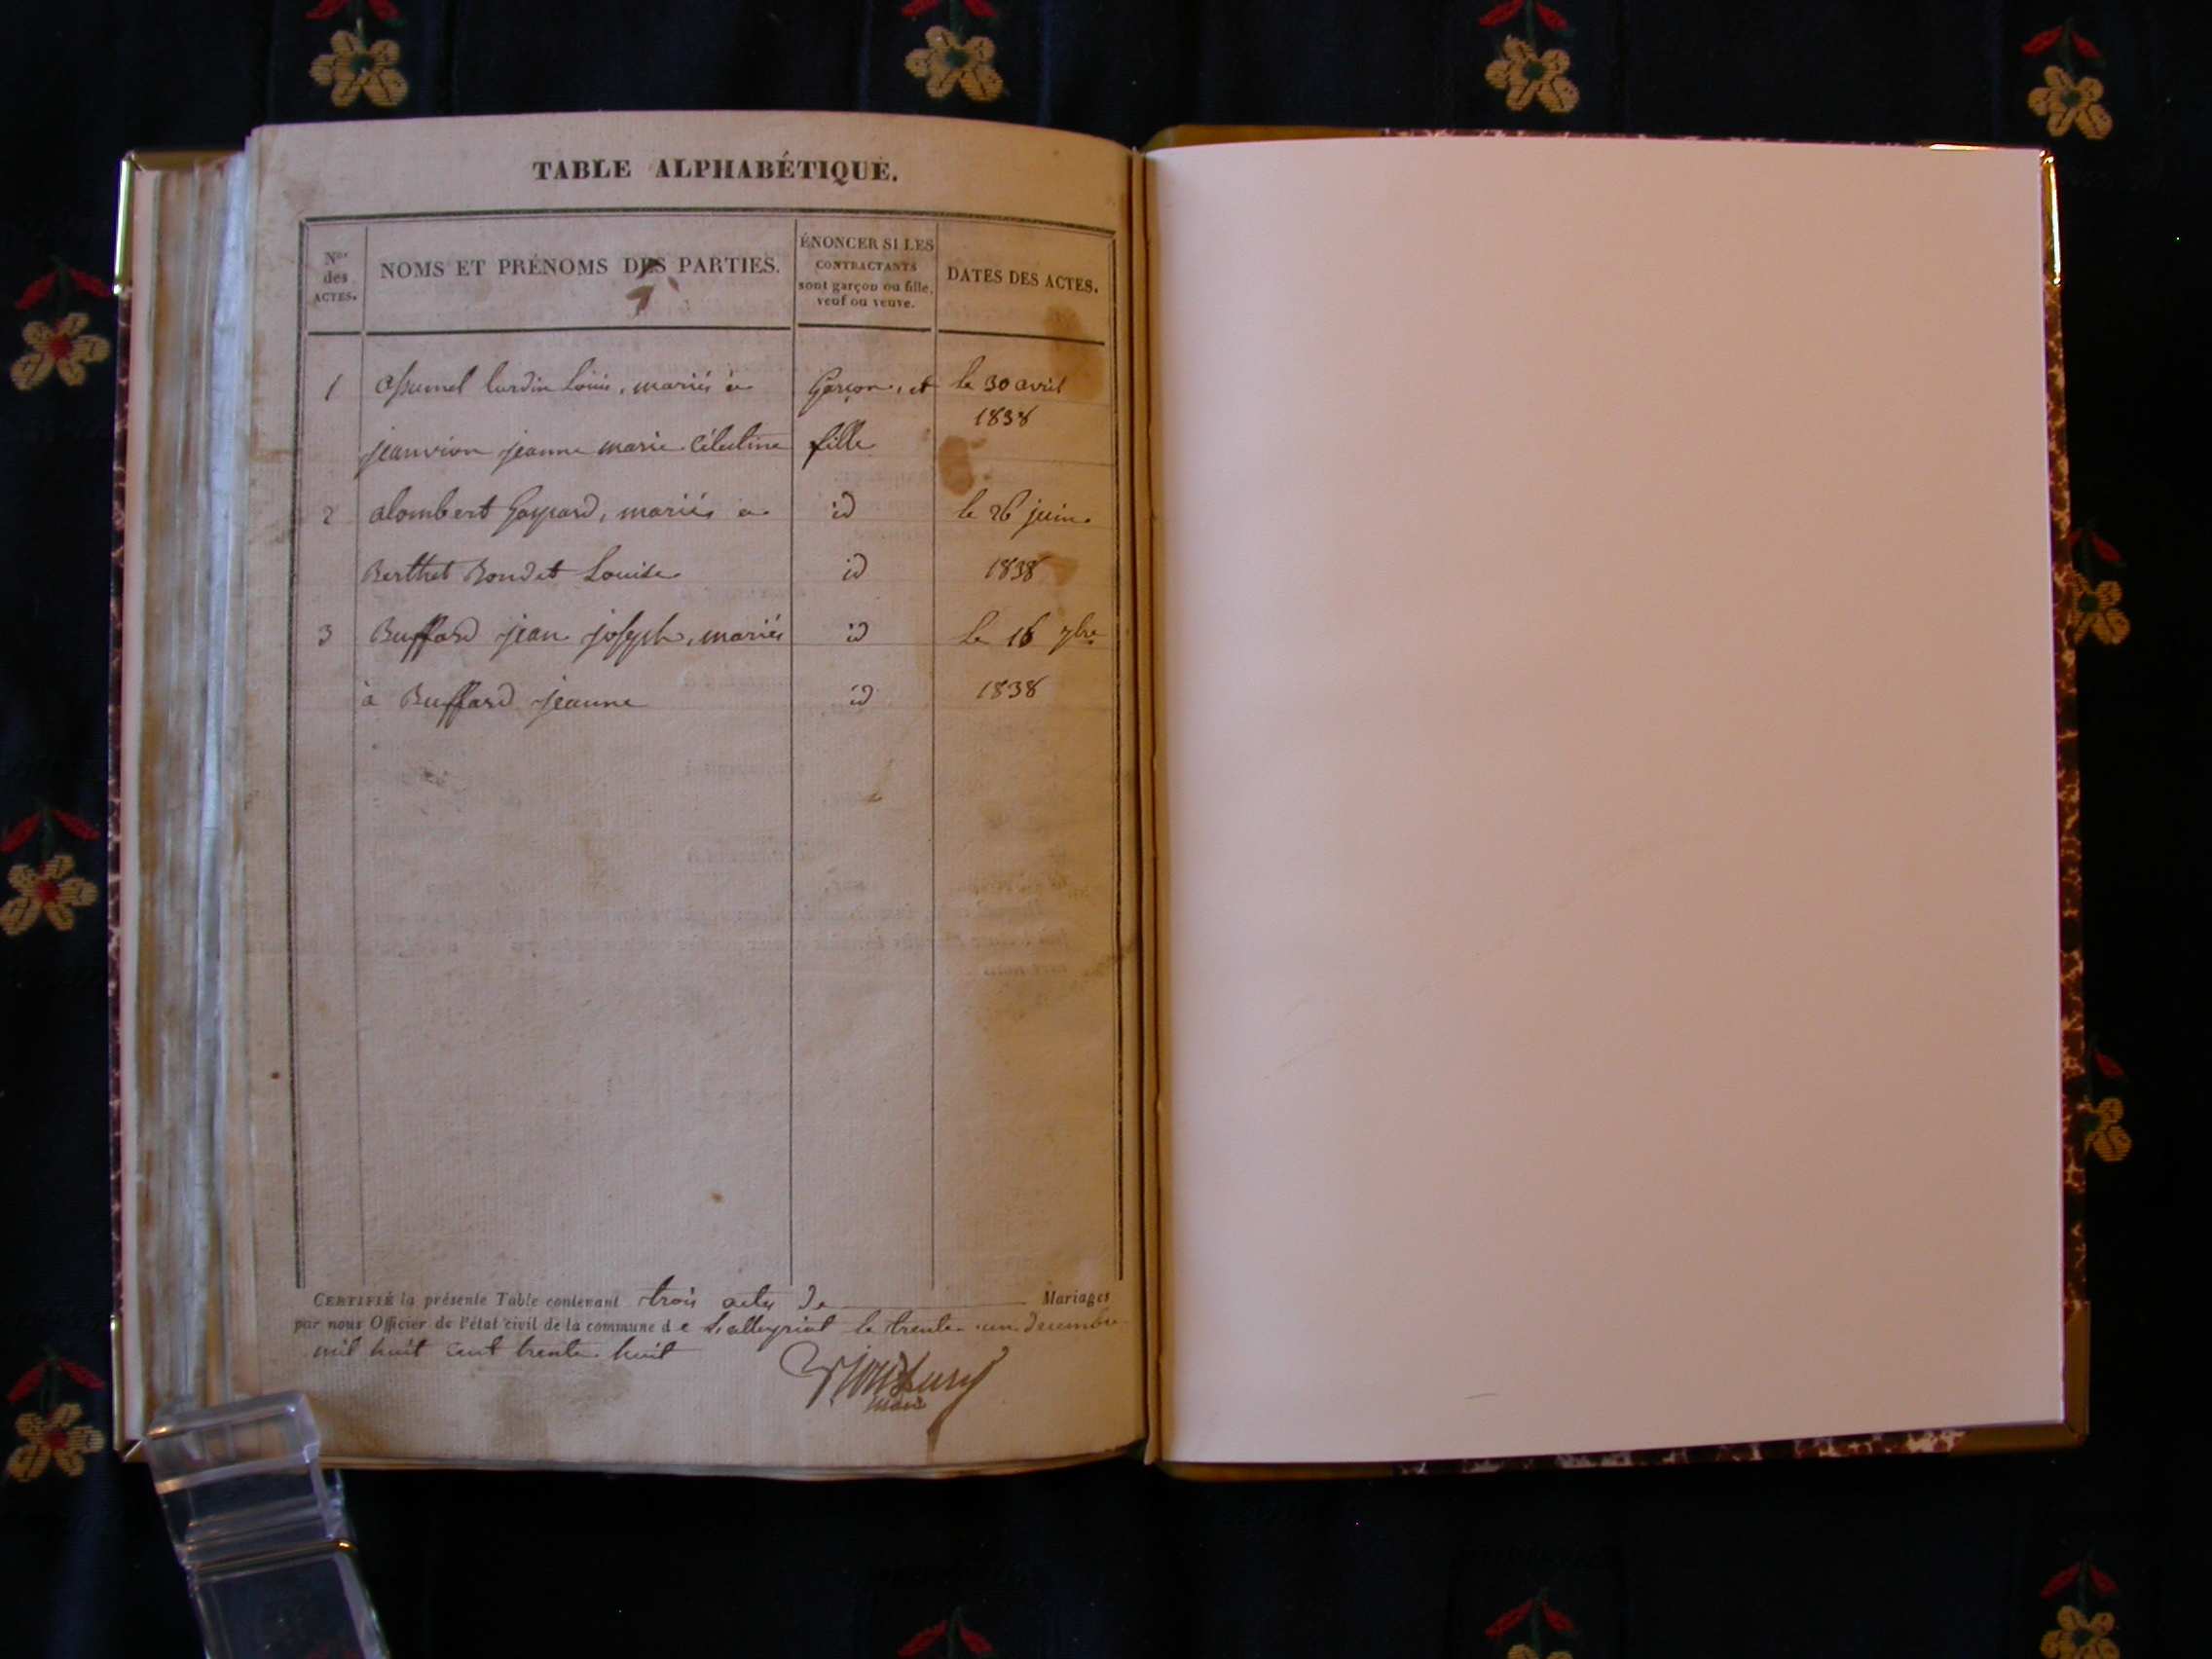 TABLE ALPHABÉTIQUE.
Nos des ACTES.
NOMS ET PRÉNOMS DES PARTIES.
ÉNONCER SI LES
CONTRACTANTS
sont garçon ou fille,
veuf ou veuve.
DATES DES ACTES.
1 Assumel lurdin Louis, mariés à Garçon, et le 30 avril
1838
jeanvion jeanne marie Célestine fille
2 alombert Gaspard, mariés à id le 26 juin
Berthet Bondet Louise id 1838
3 Buffard jean joseph, mariés id Le 16 7bre
à Buffard jeanne id 1838
CERTIFIÉ la présente Table contenant trois actes de Mariages
par nous Officier de l'état civil de la commune de le trente un decembre
mil huit cent trente huit
maire